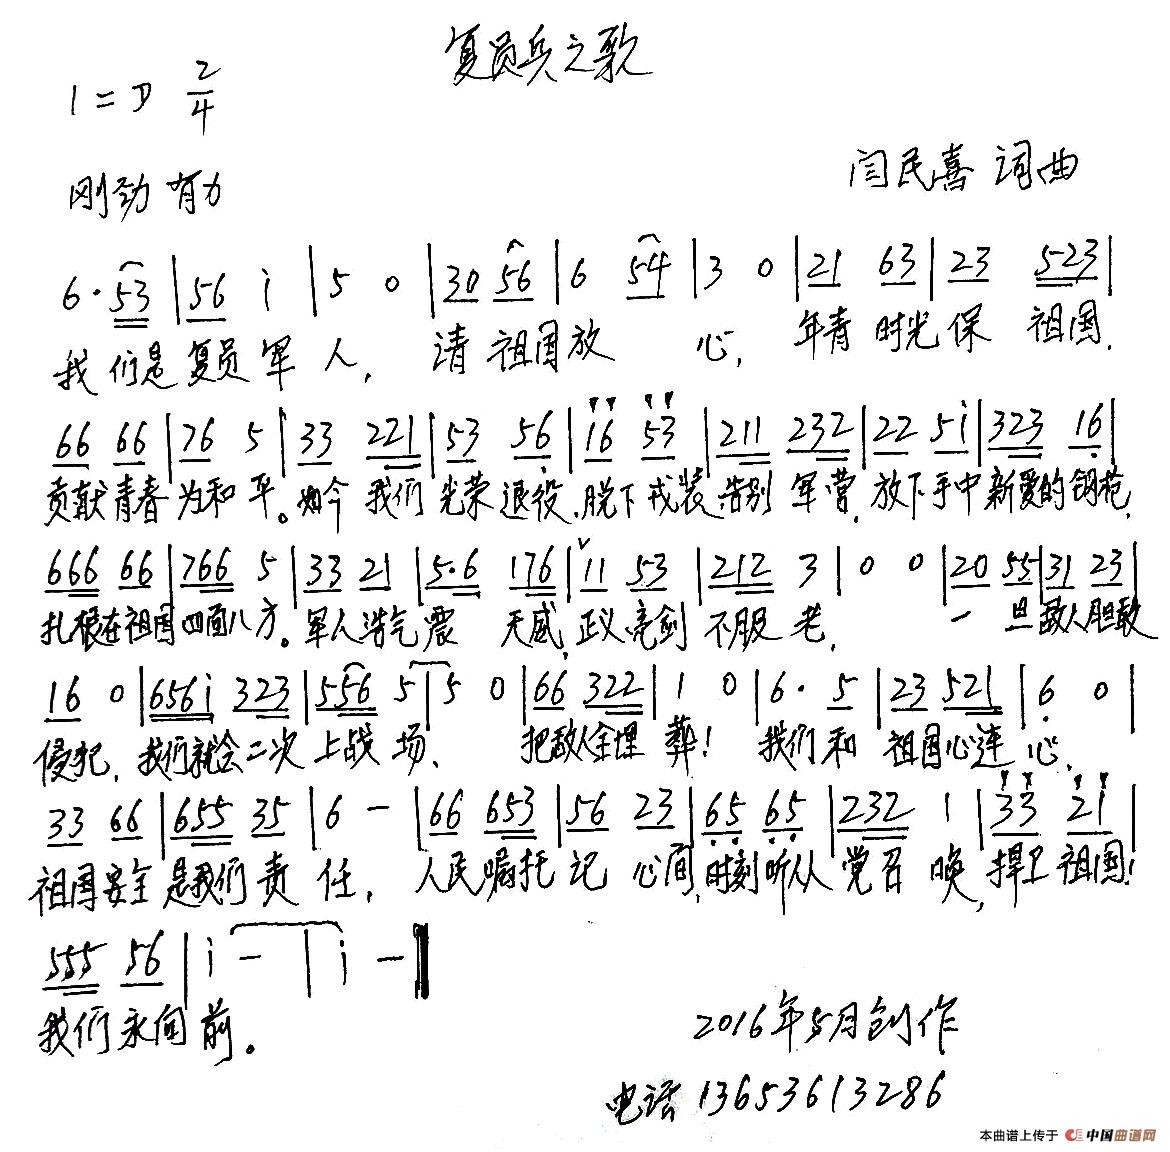 复员兵之歌
1=D 2/4
刚劲有力
闫民喜 词曲
6·53|56 i|5 0|30 56|6 54|3 0|21 63|23 523|
我们是复员军人，请祖国放心，年青时光保祖国，
66 66|76 5|33 221|53 56|16 53|211 232|22 5i|323 16|
贡献青春为和平。如今我们光荣退役，脱下戎装，告别军营，放下手中新爱的钢枪，
666 66|766 5|33 21|5·6 176|11 53|212 3|0 0|20 55|31 23|
扎根在祖国四面八方。军人浩气震天威，正义亮剑不服老，一旦敌人胆敢
16 0|656i 323|556 5|5 0|66 322|1 0|6· 5|23 521|6 0|
侵犯，我们就会二次上战场、把敌人全埋葬！我们和祖国心连心，
33 66|655 35|6 -|66 653|56 23|65 65|232 1|33 21|
祖国安全是我们责任，人民嘱托记心间，时刻听从党召唤，捍卫祖国！
555 56|i -|i -‖
我们永向前。
2016年5月创作
电话 13653613286
本曲谱上传于 中国曲谱网